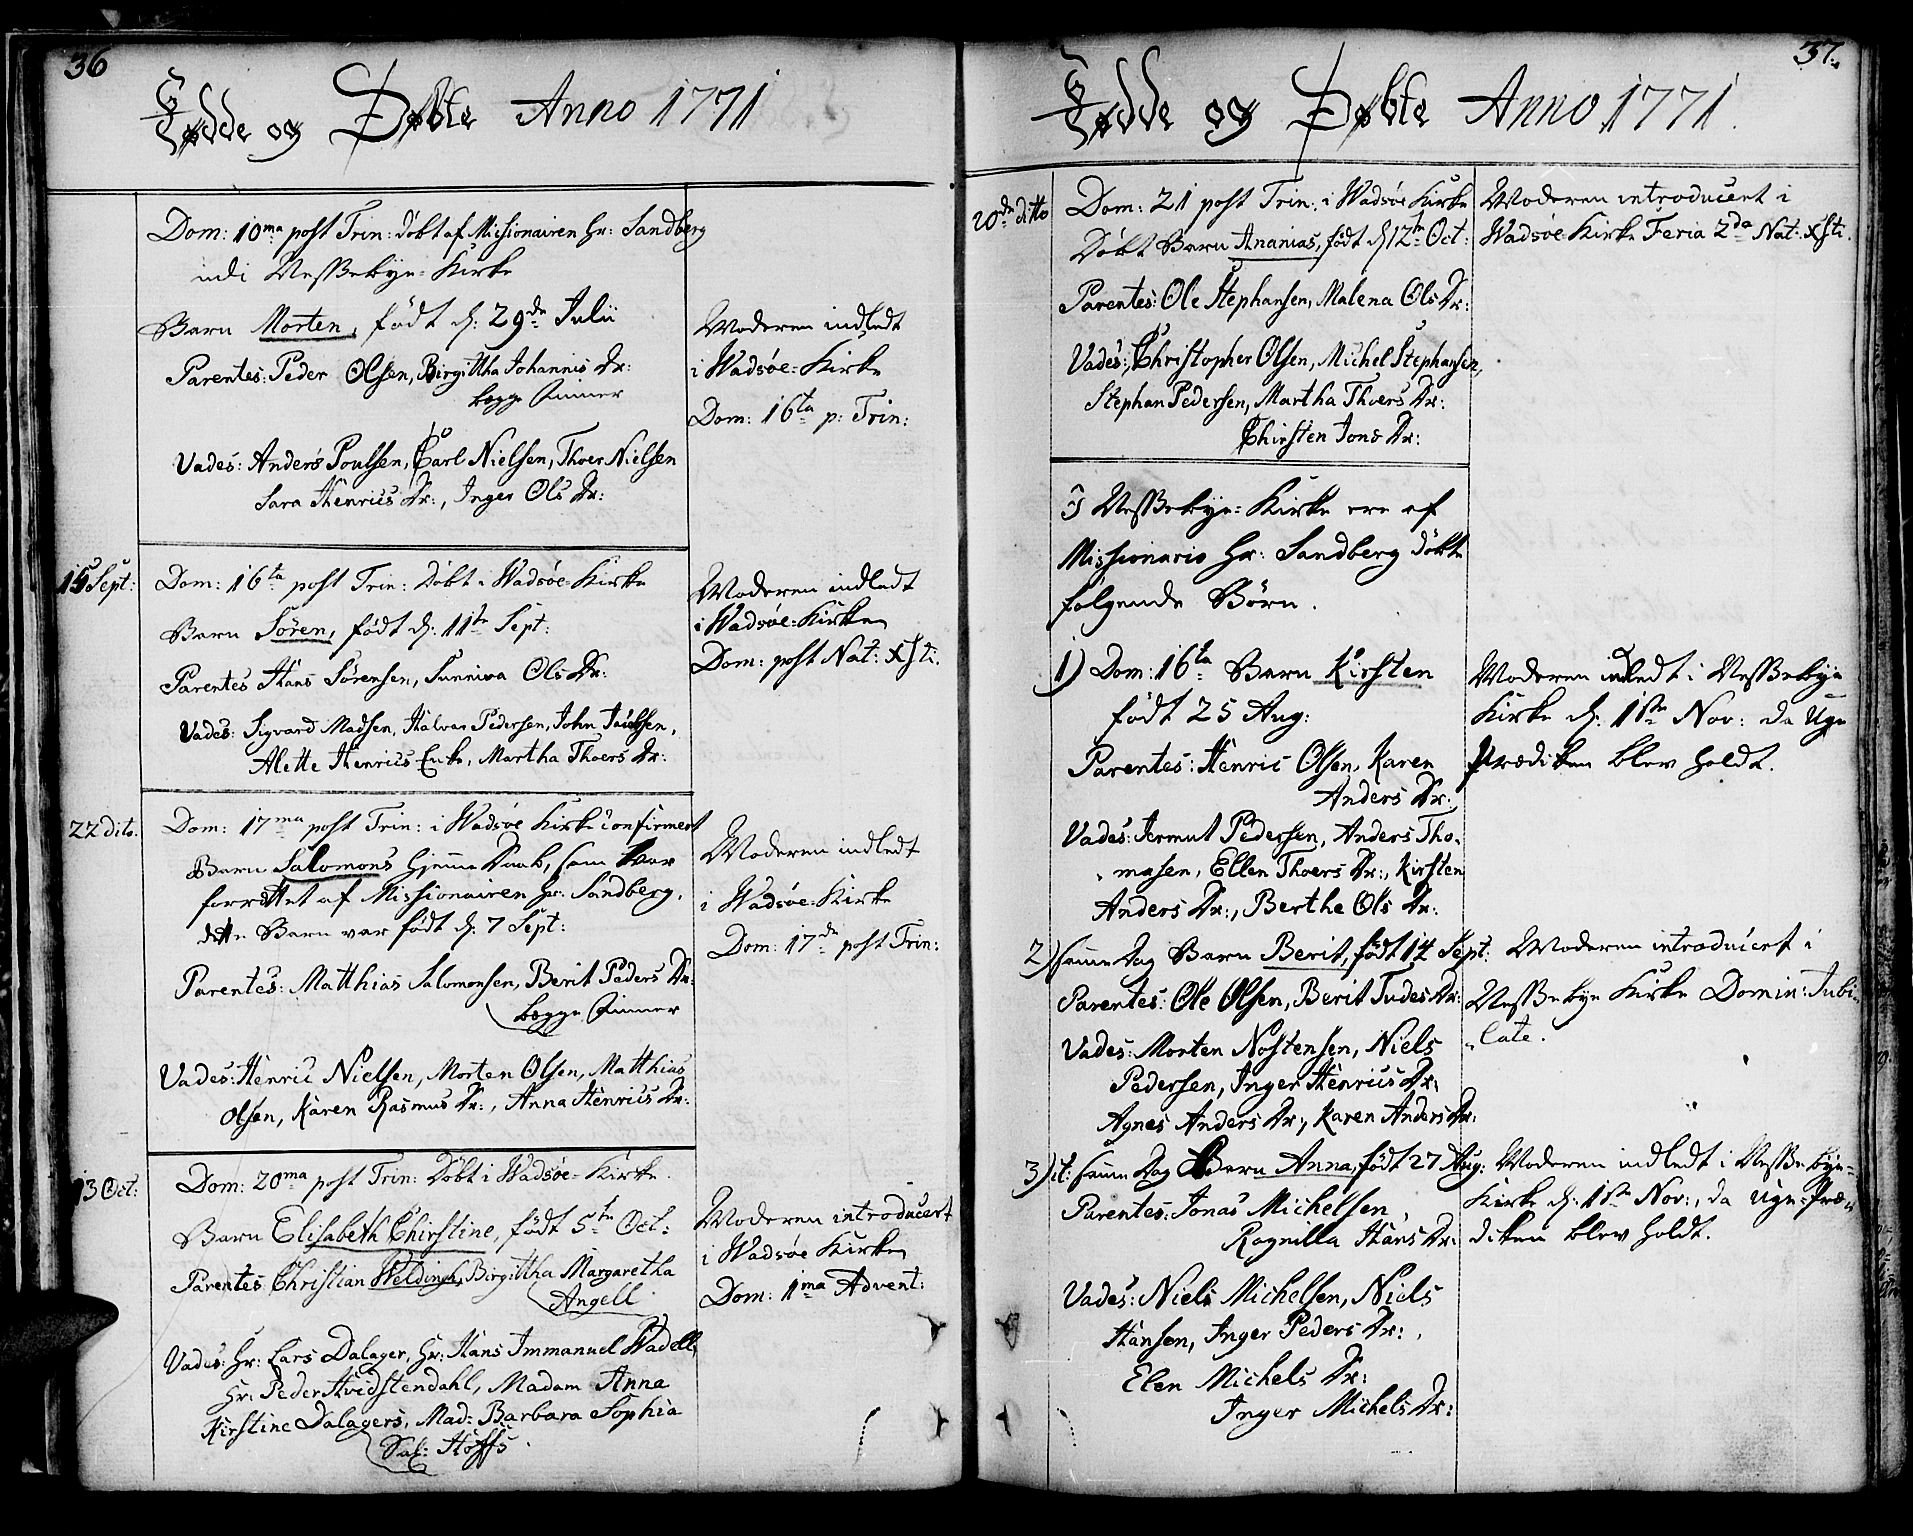 36
Fødde og Døbte Anno 1771
Dom: 10ma post Trin: döbt af Missionairen Hr: Sandberg
udi Nessebye-Kirke
Barn Morten, födt d: 29de Julii
Parentes: Peder Olsen, Birgittha Johannis Dr:
begge Finner
Vades: Anders Poulsen, Carl Nielsen, Thoer Nielsen
Sara Henrics Dr:, Inger Ols Dr:
Moderen indledt
i Wadsöe-Kirke
Dom: 16ta p: Trin:
15 Sept:
Dom: 16ta post Trin: Döbt i Wadsöe-Kirke
Barn Sören, födt d: 11te Sept:
Parentes Hans Sörensen, Sunniva Ols Dr:
Vades: Sigvard Madsen, Halvar Pedersen, John
Alette Henrics Enke, Martha Thoers Dr:
Moderen indledt
i Wadsöe-Kirke
Dom: post Nat: Xsti.
22 dito.
Dom: 17ma post Trin: i Wadsöe Kirke confirmert
Barn Salomons hjemme Daab, som var
forrettet af Missionairen Hr: Sandberg,
dette Barn var födt d: 7 Sept:
Parentes: Matthias Salomonsen, Berit Peders Dr:
begge Finner
Vades: Henric Nielsen, Morten Olsen, Matthias
Olsen, Karen Rasmus Dr:, Anna Henrics Dr:
Moderen indledt
i Wadsöe-Kirke
Dom: 17de post Trin:
13 Oct:
Dom: 20ma post Trin: Döbt i Wadsöe-Kirke.
Barn Elisabeth Chirstine, födt 5te Oct:
Parentes Christian Weldingh, Birgittha Margaretha
Angell
Vades: Hr: Lars Dalager, Hr: Hans Immanuel Wadell,
Hr: Peder Hvidstendahl, Madam Anna
Kirstine Dalagers, Mad: Barbara Sophia
Sal: Höffs.
Moderen introducert
i Wadsöe Kirke
Dom: 1ma Advent:
37.
Fødde og Døbte Anno 1771.
20de ditto
Dom: 21 post Trin: i Wadsöe Kirke
Döbt Barn Ananias, födt d 12te Oct:
Parentes: Ole Stephansen, Malena Ols Dr:
Vades: Christopher Olsen, Michel Stephansen,
Stephan Pedersen, Martha Thoers Dr:
Chirsten Jons Dr:
Moderen introducert i
Wadsöe-Kirke Feria 2da Nat: Xsti.
I Nessebye-Kirke ere af
Missionario Hr: Sandberg döbte
følgende Börn.
1) Dom: 16ta Barn Kirsten
födt 25 Aug:
Parentes: Henric Olsen, Karen
Anders Dr:
Vades: Jermut Pedersen, Anders Tho-
masen, Ellen Thoers Dr:, Kirsten
Anders Dr:, Berthe Ols Dr:
Moderen indledt i Nessebye
Kirke d: 1ste Nov: da Uge
Prædiken blev holdt.
2) samme Dag Barn Berit, födt 14 Sept:
Parentes: Ole Olsen, Berit Tudes Dr:
Vades: Morten Nostensen, Niels
Pedersen, Inger Henrics Dr:
Agnes Anders Dr:, Karen Anders Dr:
Moderen introducert i
Nessebye Kirke Domin: Jubi-
late.
3) it: samme Dag Barn Anna, födt 27 Aug:
Parentes: Jonas Michelsen,
Ragnilla Hans Dr:
Vades: Niels Michelsen, Niels
Hansen, Inger Peders Dr:,
Elen Michels Dr:
Inger Michels Dr:
Moderen indledt i Nessebye-
Kirke d: 1ste Nov:, da Uge-Præ-
diken blev holdt.